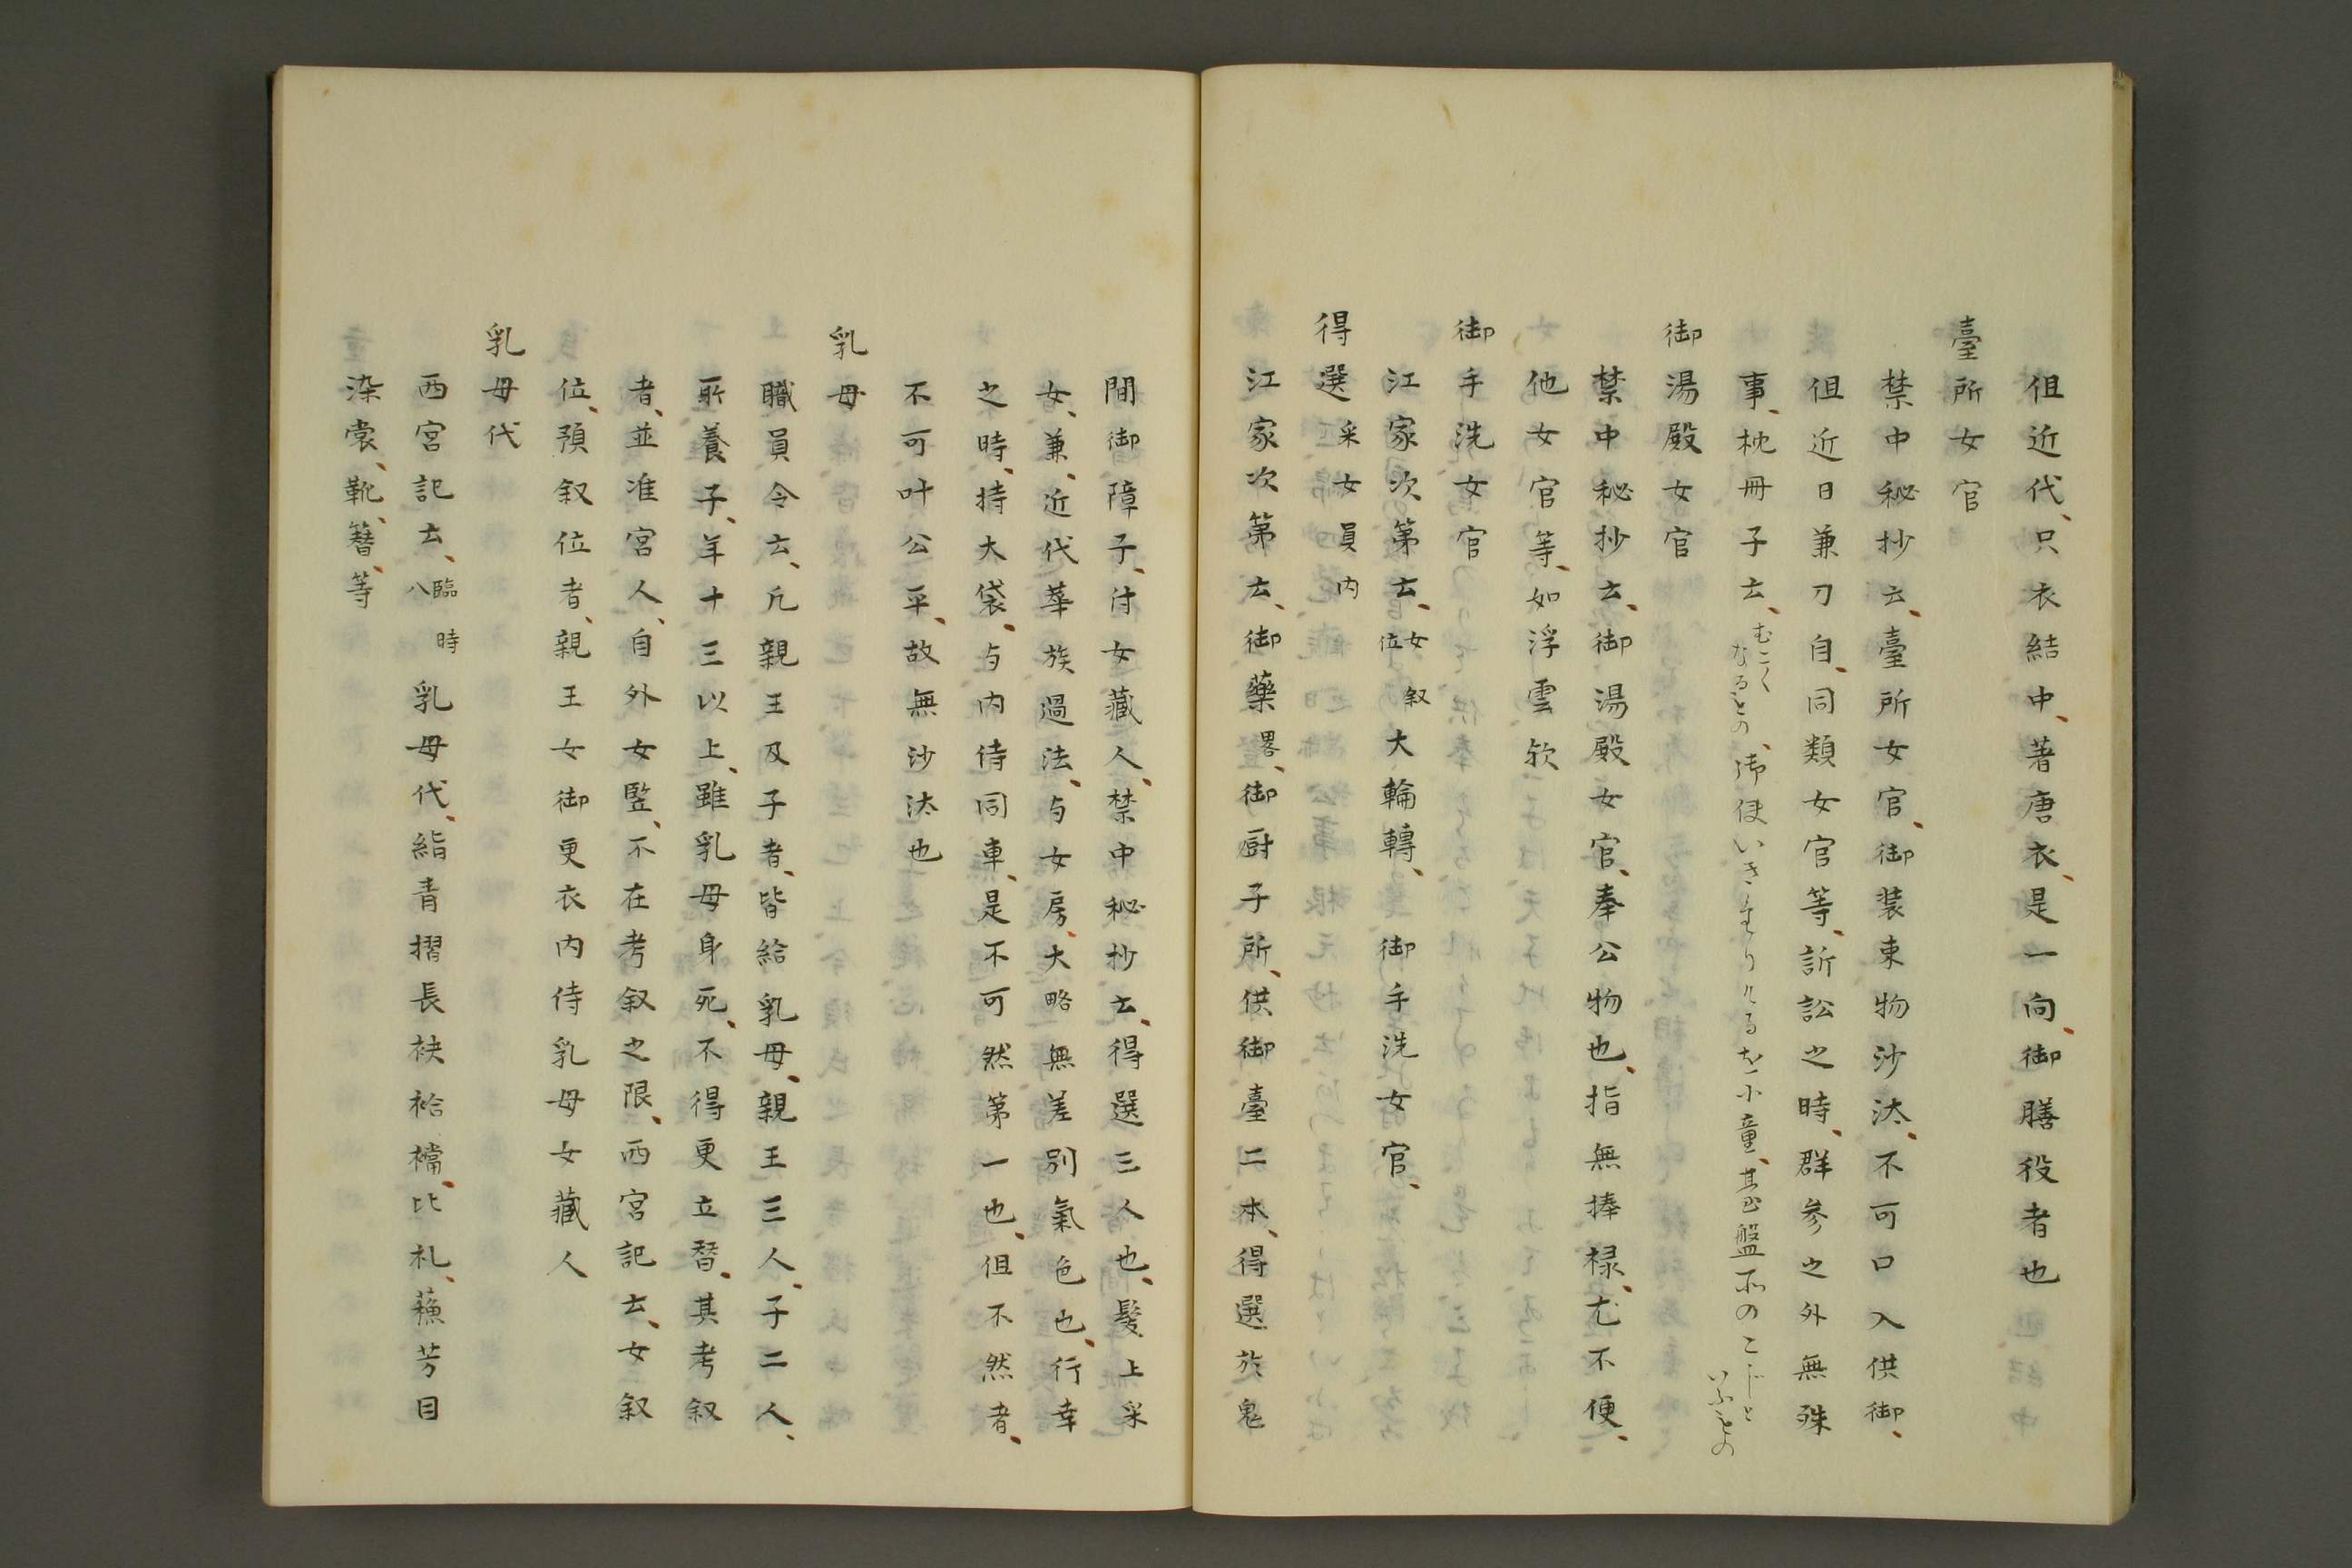 但近代、只衣結中、著唐衣、是一向、御膳役者也
臺所女官
禁中秘抄云、臺所女官、御装束物沙汰、不可口入供御、
但近日兼刀自、同類女官等、訴訟之時、群参之外無殊
事、枕冊子云、なるもの、御使
御湯殿女官
禁中秘抄云、御湯殿女官、奉公物也、指無捧禄、尤不便、
他女官等、如浮雲欤
御手洗女官
江家次第云、女叙位大輪轉、御手洗女官、
得選采女員内
江家次第云、御藥畧、御厨子所、供御臺二本、得選於鬼
間御障子、付女藏人、禁中秘抄云、得選三人也、髪上采
女、兼、近代華族過法、与女房、大略無差別氣色也、行幸
之時、持大袋、与内侍同車、是不可然第一也、但不然者、
不可叶公平、故無沙汰也
乳母
職員令云、凡親王及子者、皆給乳母、親王三人、子二人、
所養子、年十三以上、雖乳母身死、不得更立替、其考叙
者、並准宮人、自外女竪、不在考叙之限、西宮記云、女叙
位、預叙位者、親王女御更衣内侍乳母女藏人
乳母代
西宮記云、臨時八乳母代、紺青摺長袂袷襠、比礼、蘓芳目
染裳、靴、簪、等